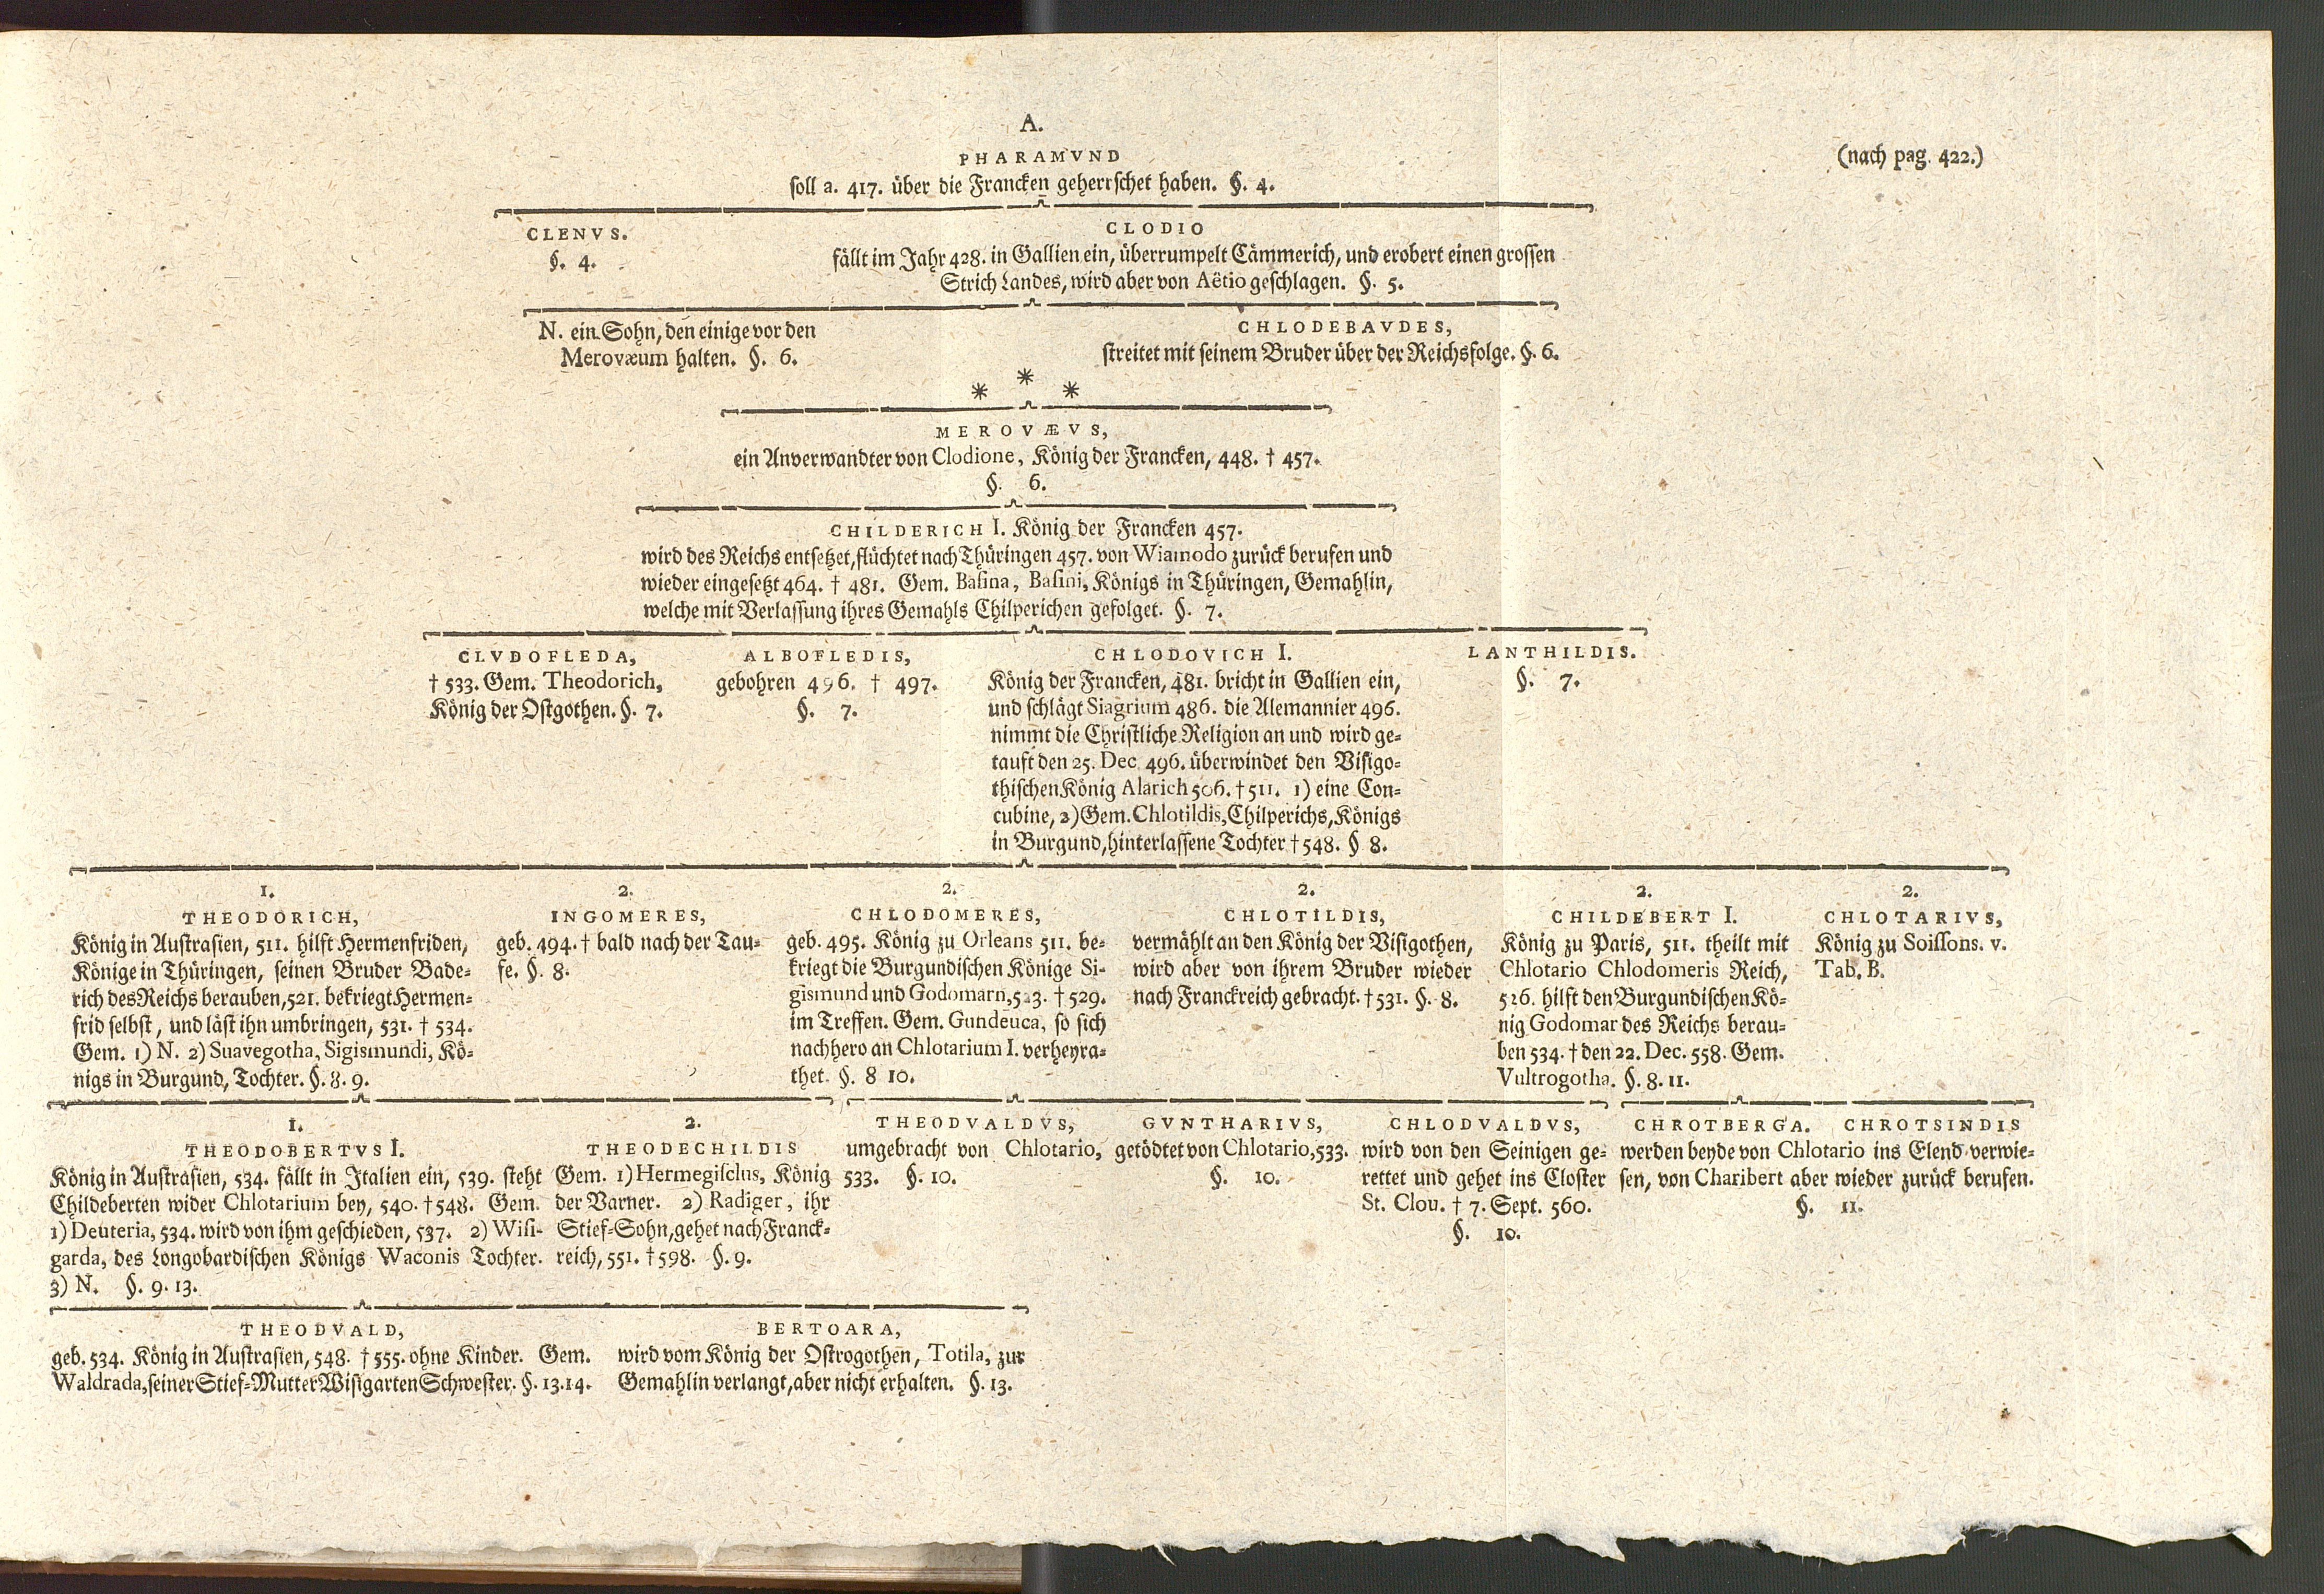 A.
(nach pag. 422.)
PHARAMVND
soll a. 417. über die Francken geherrschet haben. §. 4.
CLENVS.
§. 4.
CLODIO
fällt im Jahr 428. in Gallien ein, überrumpelt Cämmerich, und erobert einen grossen
Strich Landes, wird aber von Aëtio geschlagen. §. 5.
N. ein Sohn, den einige vor den
Merovæum halten. §. 6.
CHLODEBAVDES,
streitet mit seinem Bruder über der Reichsfolge. §. 6.
* * *
MEROVÆVS,
ein Anverwandter von Clodione, König der Francken, 448. † 457.
§. 6.
CHILDERICH I. König der Francken 457.
wird des Reichs entsetzet, flüchtet nach Thüringen 457. von Wiamodo zurück berufen und
wieder eingesetzt 464. † 481. Gem. Basina, Basini, Königs in Thüringen, Gemahlin,
welche mit Verlassung ihres Gemahls Chilperichen gefolget. §. 7.
CLVDOFLEDA,
† 533. Gem. Theodorich,
König der Ostgothen. §. 7.
ALBOFLEDIS,
gebohren 496. † 497.
§. 7.
CHLODOVICH I.
König der Francken, 481. bricht in Gallien ein,
und schlägt Siagrium 486. die Alemannier 496.
nimmt die Christliche Religion an und wird ge-
tauft den 25. Dec. 496. überwindet den Visigo-
thischen König Alarich 506. † 511. 1) eine Con-
cubine, 2) Gem. Chlotildis, Chilperichs, Königs
in Burgund, hinterlassene Tochter † 548. § 8.
LANTHILDIS.
§. 7.
1.
THEODORICH,
König in Austrasien, 511. hilft Hermenfriden,
Könige in Thüringen, seinen Bruder Bade-
rich des Reichs berauben, 521. bekriegt Hermen-
frid selbst, und läst ihn umbringen, 531. † 534.
Gem. 1) N. 2) Suavegotha, Sigismundi, Kö-
nigs in Burgund, Tochter. §. 8. 9.
2.
INGOMERES,
geb. 494. † bald nach der Tau-
fe. §. 8.
2.
CHLODOMERES,
geb. 495. König zu Orleans 511. be-
kriegt die Burgundischen Könige Si-
gismund und Godomarn, 523. † 529.
im Treffen. Gem. Gundeuca, so sich
nachhero an Chlotarium I. verheyra-
thet. §. 8 10.
2.
CHLOTILDIS,
vermählt an den König der Visigothen,
wird aber von ihrem Bruder wieder
nach Franckreich gebracht. † 531. §. 8.
2.
CHILDEBERT I.
König zu Paris, 511. theilt mit
Chlotario Chlodomeris Reich,
526. hilft den Burgundischen Kö-
nig Godomar des Reichs berau-
ben 534. † den 22. Dec. 558. Gem.
Vultrogotha. §. 8. 11.
2.
CHLOTARIVS,
König zu Soissons. v.
Tab. B.
1.
THEODOBERTVS I.
König in Austrasien, 534. fällt in Italien ein, 539. steht
Childeberten wider Chlotarium bey, 540. † 548. Gem.
1) Deuteria, 534. wird von ihm geschieden, 537. 2) Wisi-
garda, des Longobardischen Königs Waconis Tochter.
3) N. §. 9. 13.
2.
THEODECHILDIS
Gem. 1) Hermegisclus, König
der Varner. 2) Radiger, ihr
Stief-Sohn, gehet nach Franck-
reich, 551. † 598. §. 9.
THEODVALDVS,
umgebracht von Chlotario,
533. §. 10.
GVNTHARIVS,
getödtet von Chlotario, 533.
§. 10.
CHLODVALDVS,
wird von den Seinigen ge-
rettet und gehet ins Closter
St. Clou. † 7. Sept. 560.
§. 10.
CHROTBERGA. CHROTSINDIS
werden beyde von Chlotario ins Elend verwie-
sen, von Charibert aber wieder zurück berufen.
§. 11.
THEODVALD,
geb. 534. König in Austrasien, 548. † 555. ohne Kinder. Gem.
Waldrada, seiner Stief-Mutter Wisigarten Schwester. §. 13. 14.
BERTOARA,
wird vom König der Ostrogothen, Totila, zur
Gemahlin verlangt, aber nicht erhalten. §. 13.